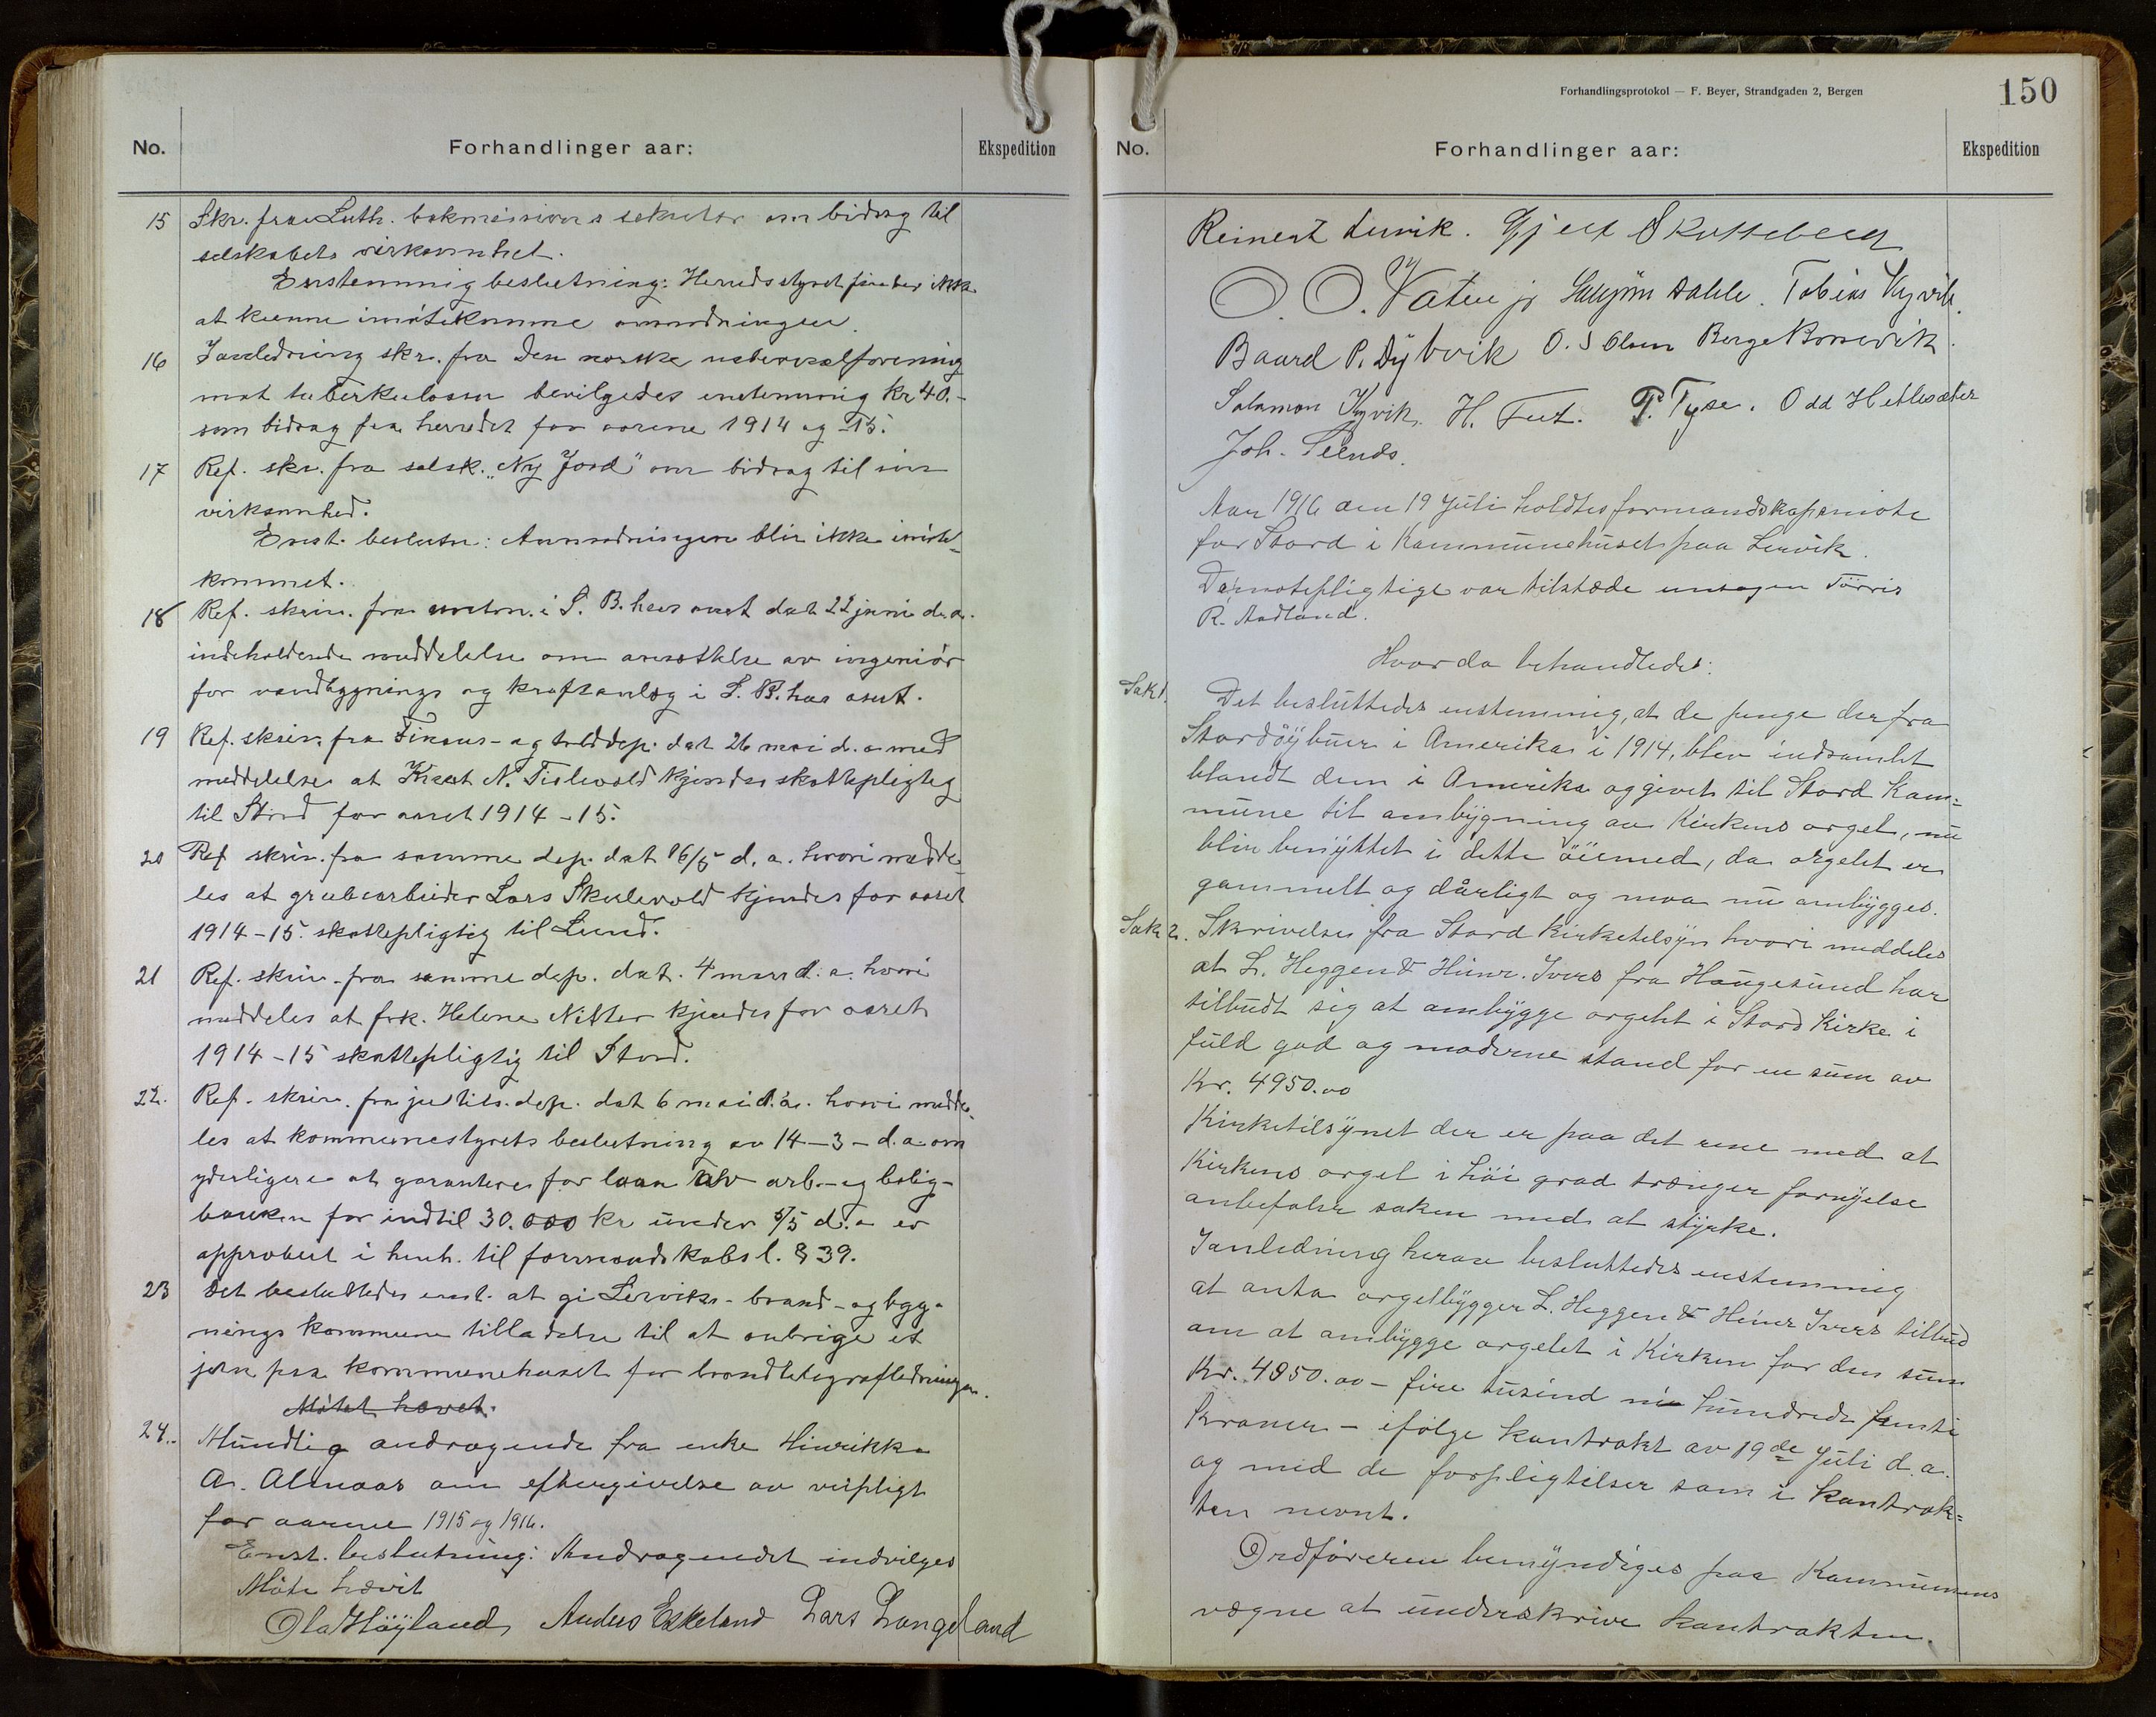 No.
Forhandlinger aar:
Ekspedition
15 Skr. fra Luth. bokmissions sekretær om bidrag til
selskabets virksomhet.
Enstemmig beslutning: Herredsstyret finder ikke
at kunne imøtekomme anmodningen.
16 Ianledning skr. fra Den norske nationalforening
mot tuberkulosen bevilgedes enstemmig kr 40.-
som bidrag fra herredet for aarene 1914 og 15.
17 Ref. skr. fra selsk. "Ny Jord" om bidrag til sin
virksomhed.
Enst. beslutn: Anmodningen blir ikke imøte-
kommet.
18 Ref. skriv. fra amtm. i S. B. hus amt dat 22 juni d. a.
indeholdende meddelelse om ansættelse av ingeniør
for vandbygnings og kraftanlæg i S. B. hus amt.
19 Ref. skriv. fra Finans- og tolddep. dat 26 mai d. a med
meddelelse at Knut N. Tislevold kjendes skattepligtig
til Stord for aaret 1914-15.
20 Ref skriv. fra samme dep. dat 16/5 d. a. hvori medde-
les at grubearbeider Lars Skulevold kjendes for aaret
1914-15. skattepligtig til Lund.
21 Ref. skriv. fra samme dep. dat. 4 mars d. a. hvori
meddeles at frk. Helene Nitter kjendes for aaret
1914-15 skattepligtig til Stord.
22. Ref. skriv. fra justits. dep. dat 6 mai d. a. hvori medde-
les at kommunestyrets beslutning av 14-3- d. a. om
yderligere at garantere for laan av arb.- og bolig-
banken for indtil 30.000 kr under 5/5 d. a er
approbert i henh. til formandskabsl. § 39.
23 Det besluttedes enst. at gi Lerviks- brand- og byg-
nings kommune tilladelse til at anbringe et
jern paa kommunehuset for brandtelegrafledningen.
Møtet hævet.
24. Mundlig andragende fra enke Hinrikka
A. Almaas om eftergivelse av veipligt
for aarene 1915 og 1916.
Enst. beslutning: Andragendet indvilges
Møte hævit
Ola Høyland Anders Eskeland Lars Langeland
Forhandlingsprotokol — F. Beyer, Strandgaden 2, Bergen
150
No.
Forhandlinger aar:
Ekspedition
Reinert Lervik. Gjert Skotteberg
O. O. Vatne jr Dahle. Tobias Kyvik.
Baard P. Dybvik O. S Olsen Berge Borsevik
Salomon Kyvik. H. Fut. P. Tyse. Odd Hetlesæter
Joh.
Aar 1916 den 19 Juli holdtes formandskapsmöte
for Stord i Kommunehuset paa Lervik.
De motepligtige var tilstæde untagen Törris
R. Aadland.
Hvor da behandledes:
Sak 1. Det besluttedes enstemmig, at de penge der fra
Stordöybuer i Amerika i 1914, blev indsamlet
blandt dem i Amerika og givet til Stord Kom=
mune til ombygning av Kirkens orgel, nu
blir benyttet i dette öiemed, da orgelet er
gammelt og dårligt og maa nu ombygges.
Sak 2. Skrivelse fra Stord Kirketilsyn hvori meddeles
at L. Heggen & Hinr. Ivers fra Haugesund har
tilbudt sig at ombygge orgelet i Stord Kirke i
fuld god og moderne stand for en sum av
Kr. 4950.00
Kirketilsynet der er paa det rene med at
Kirkens orgel i höi grad trænger fornyelse
anbefaler saken med at styrke.
Ianledning herav besluttedes enstemmig
at anta orgelbygger L. Heggen & Heinr Ivers tilbud
om at ombygge orgelet i Kirken for den sum
Kr. 4950.00 - fire tusind ni hundrede femti
Kroner - ifölge kontrakt av 19de Juli d. a.
og med de forpligtelser som i kontrak=
ten nevnt.
Ordföreren bemyndiges paa Kommunens
vegne at underskrive kontrakten.